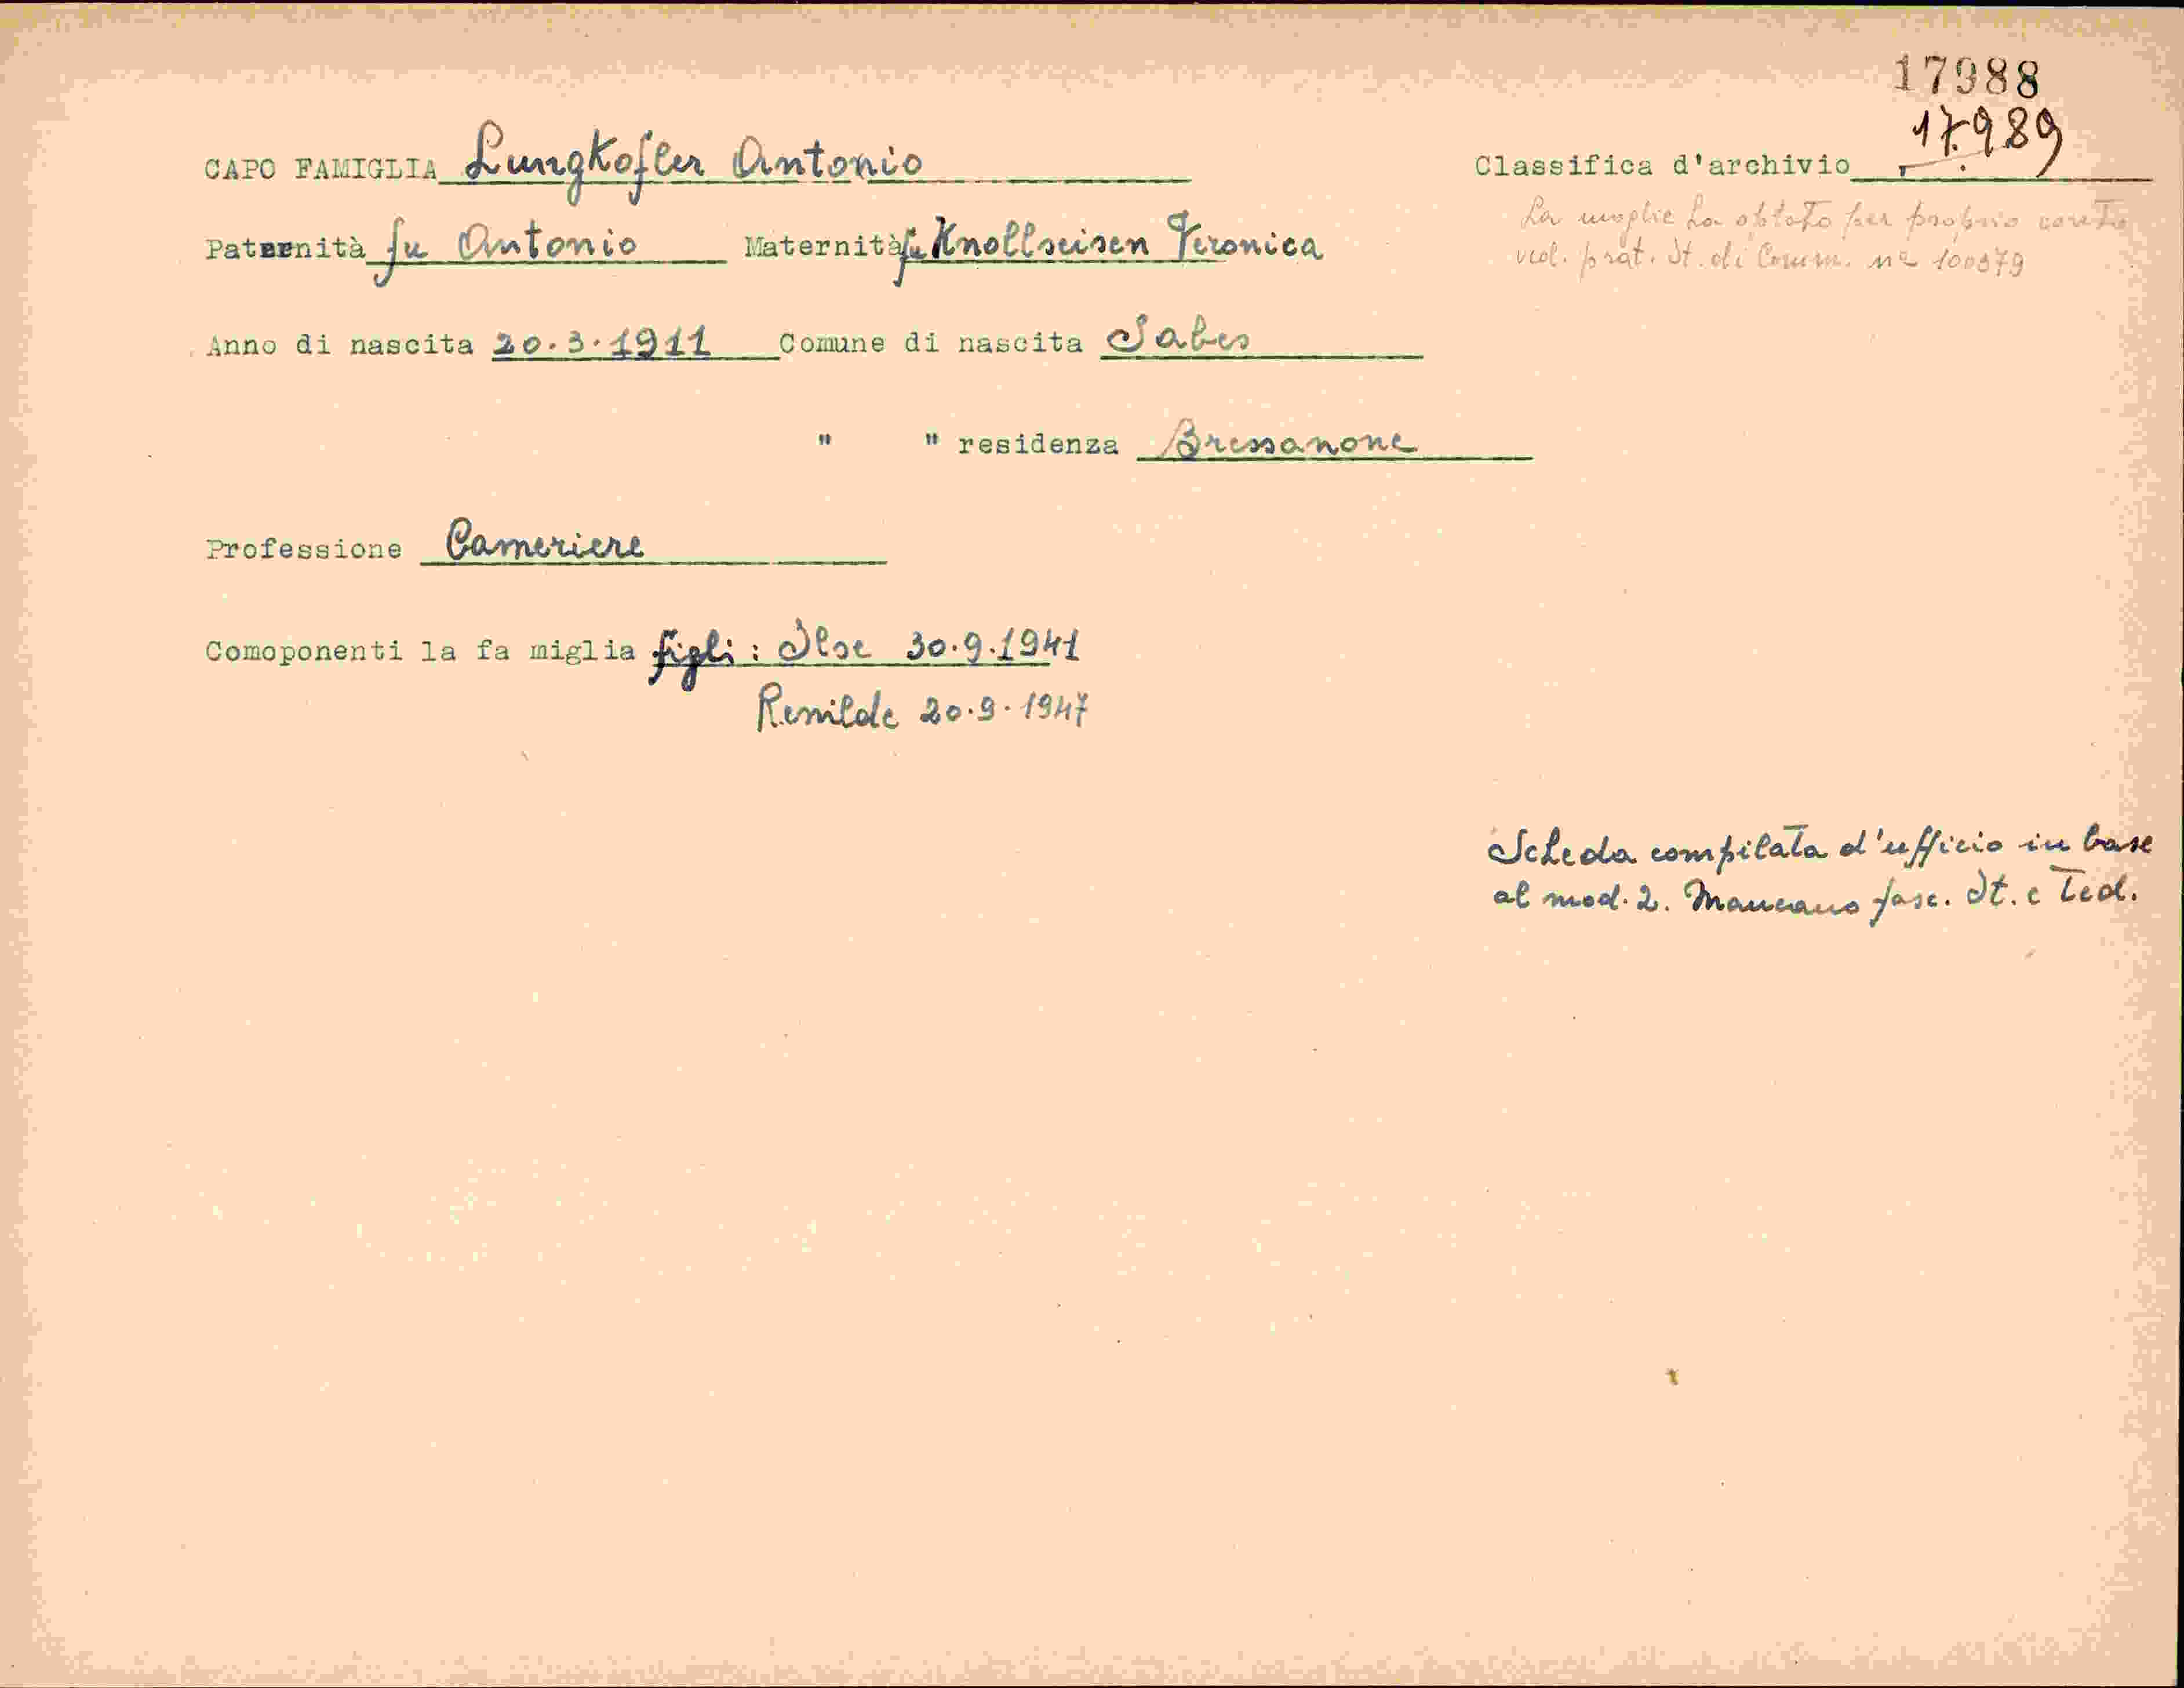 17988
17.989
CAPO FAMIGLIA Lungkofler Antonio Classifica d'archivio
La moglie ha optato per proprio conto
Paternità fu Antonio Maternità fu Knollseisen Veronica
ved. prat. It. di Comm. nº 100379
Anno di nascita 20.3.1911 Comune di nascita Sabes
" " residenza Bressanone
Professione Cameriere
Comoponenti la fa miglia figli: Ilse 30.9.1941
Renilde 20.9.1947
Scheda compilata d'ufficio in base
al mod. 2. Mancano fasc. It. e Ted.